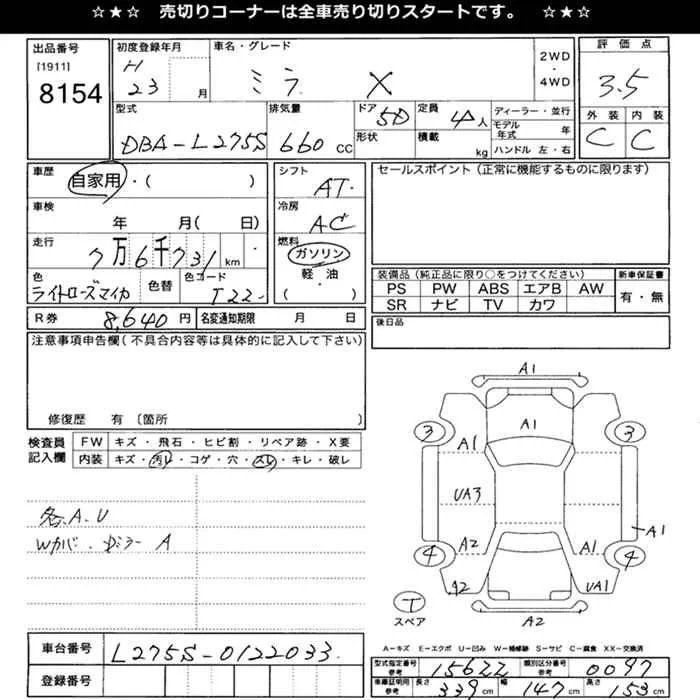 ☆★☆ 売切りコーナーは全車売り切りスタートです。 ☆★☆
出品番号
[1911]
8154
初度登録年月
H
23 月
車名・グレード
ミラ X
2WD
・
4WD
評価点
3.5
外装 内装
C C
型式
DBA-L275S
排気量
660 CC
ドア
5D
形状
定員
4人
積載
kg
ディーラー・並行
モデル年式 年
ハンドル 左・右
車歴
自家用・( )
車検
年 月( 日)
走行
7万6千731km
色
ライトローズマイカ
色替
色コード
T22
シフト
AT
冷房
AC
燃料
ガソリン
軽・油
( )
R券 8,640円 名変通知期限 月 日
セールスポイント(正常に機能するものに限ります)
装備品(純正品に限り○をつけてください)
PS PW ABS エアB AW
SR ナビ TV カワ
新車保証書
有・無
後日品
注意事項申告欄(不具合内容等は具体的に記入して下さい)
修復歴 有〔箇所 〕
検査員
記入欄
FW キズ・飛石・ヒビ割・リペア跡・X要
内装 キズ・汚レ・コゲ・穴・スレ・キレ・破レ
各A.U
Wカバ・ A
A1
A1
3 3
A1
UA3
A1
A2 A1
4 4
A2 UA1
A2
T
スペア
A-キズ E-エクボ U-凹み W-補修跡 S-サビ C-腐食 XX-交換済
車台番号 L275S-0122033
登録番号
型式指定番号
参考
15622
類別区分番号
参考
0097
車庫証明用
参考
長さ 339cm 幅 147cm 高さ 153cm